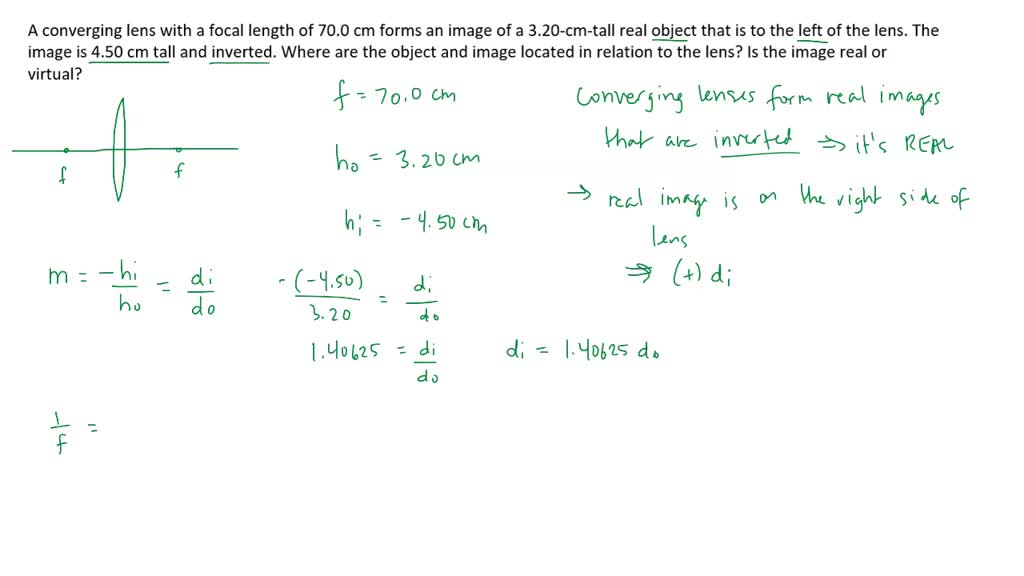 A converging lens with a focal length of 70.0 cm forms an image of a 3.20-cm-tall real object that is to the left of the lens. The
image is 4.50 cm tall and inverted. Where are the object and image located in relation to the lens? Is the image real or
virtual?
f = 70.0 cm
converging lenses form real images
that are inverted ⇒ it's REAL
f
f
h₀ = 3.20 cm
→ real image is on the right side of
lens
hᵢ = -4.50 cm
⇒ (+) dᵢ
m = -hᵢ/h₀ = dᵢ/d₀
-(-4.50)/3.20 = dᵢ/d₀
1.40625 = dᵢ/d₀
dᵢ = 1.40625 d₀
1/f =